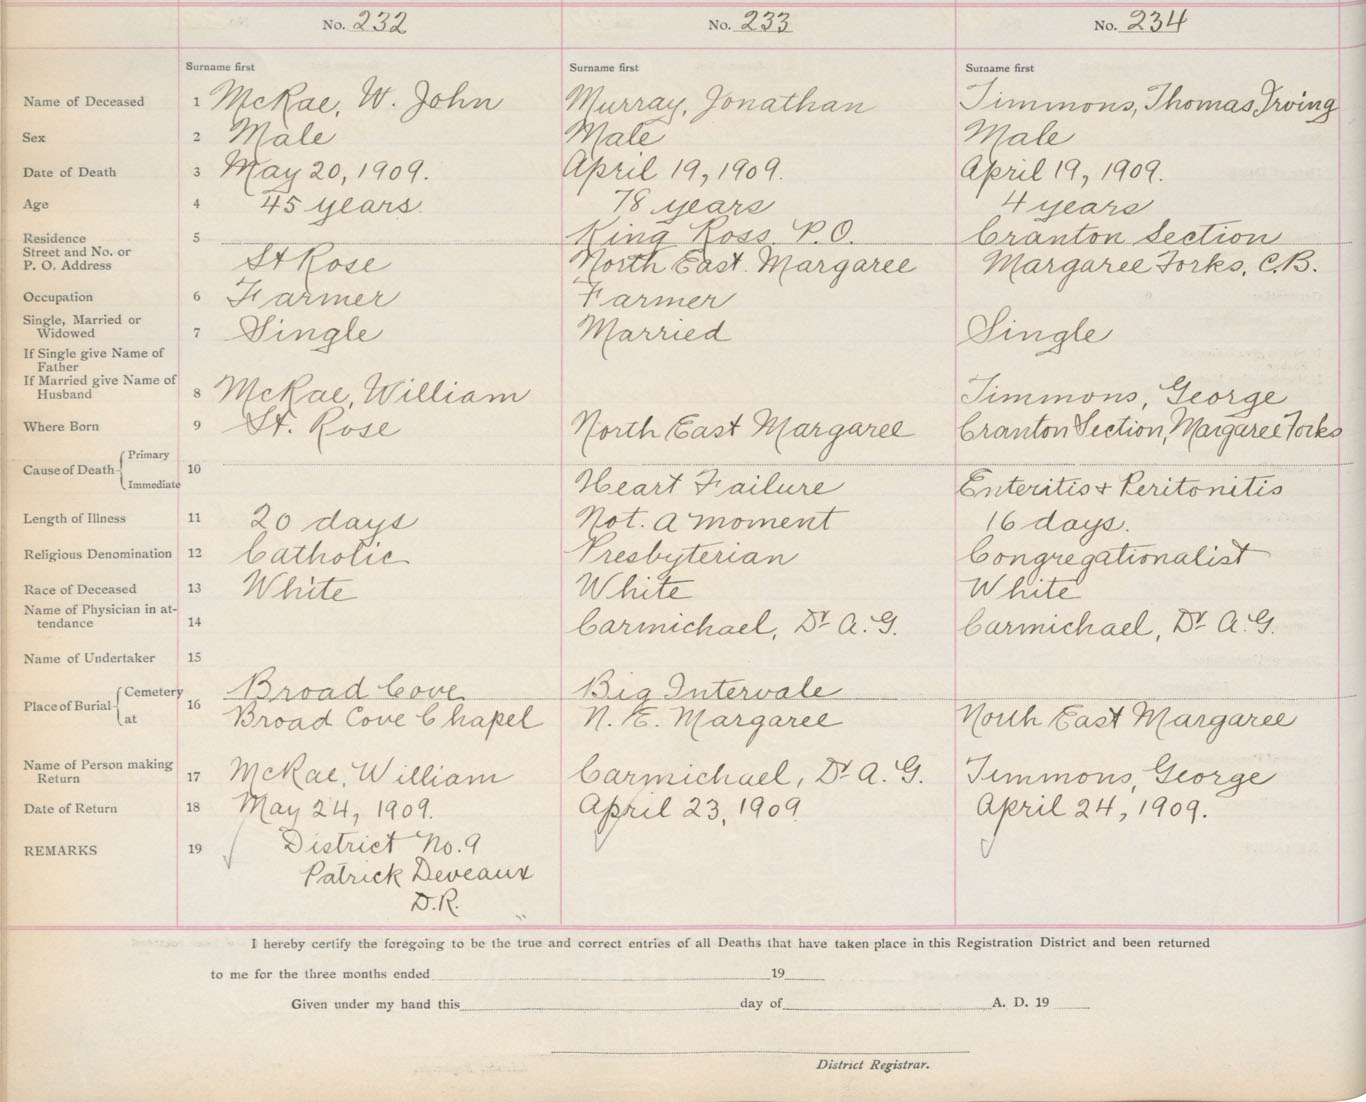 No. 232 No. 233 No. 234
Surname first Surname first Surname first
Name of Deceased 1 McRae, W. John Murray, Jonathan Timmons, Thomas Irving
Sex 2 Male Male Male
Date of Death 3 May 20, 1909. April 19, 1909. April 19, 1909.
Age 4 45 years 78 years 4 years
Residence 5 King Ross P.O. Cranton Section
Street and No. or
P. O. Address St Rose North East Margaree Margaree Forks, C.B.
Occupation 6 Farmer Farmer
Single, Married or
Widowed 7 Single Married Single
If Single give Name of
Father
If Married give Name of
Husband 8 McRae, William Timmons, George
Where Born 9 St. Rose North East Margaree Cranton Section, Margaree Forks
Cause of Death Primary 10
Immediate Heart Failure Enteritis + Peritonitis
Length of Illness 11 20 days Not. a moment 16 days.
Religious Denomination 12 Catholic Presbyterian Congregationalist
Race of Deceased 13 White White White
Name of Physician in at-
tendance 14 Carmichael, Dr A.G. Carmichael, Dr A.G.
Name of Undertaker 15
Place of Burial Cemetery 16 Broad Cove Big Intervale
at Broad Cove Chapel N. E. Margaree North East Margaree
Name of Person making
Return 17 McRae, William Carmichael, Dr A. G. Timmons, George
Date of Return 18 May 24, 1909. April 23, 1909 April 24, 1909.
REMARKS 19 District No. 9
Patrick Deveaux
D.R.
I hereby certify the foregoing to be the true and correct entries of all Deaths that have taken place in this Registration District and been returned
to me for the three months ended 19
Given under my hand this day of A. D. 19
District Registrar.